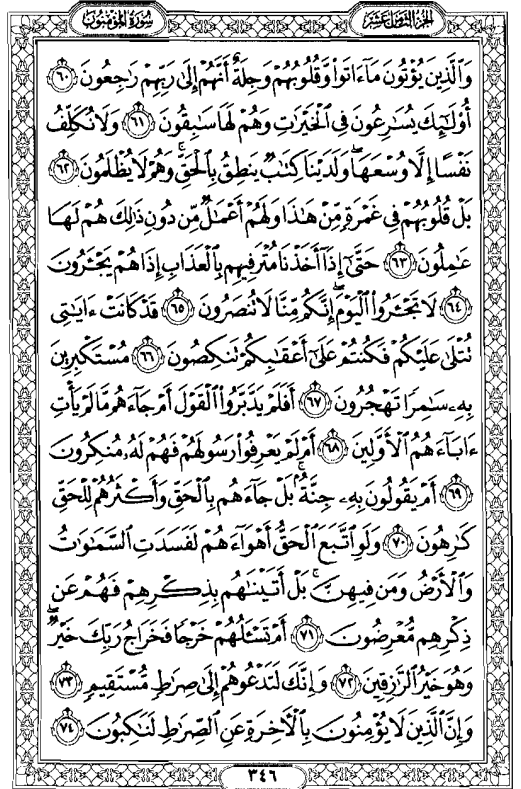 سورة المؤمنون الجزء الثامن عشر
وَالَّذِينَ يُؤْتُونَ مَا ءَاتَوا وَّقُلُوبُهُمْ وَجِلَةٌ أَنَّهُمْ إِلَىٰ رَبِّهِمْ رَٰجِعُونَ ٦٠
أُوْلَٰٓئِكَ يُسَٰرِعُونَ فِي الْخَيْرَٰتِ وَهُمْ لَهَا سَٰبِقُونَ ٦١ وَلَا نُكَلِّفُ
نَفْسًا إِلَّا وُسْعَهَا ۖ وَلَدَيْنَا كِتَٰبٌ يَنطِقُ بِالْحَقِّ ۚ وَهُمْ لَا يُظْلَمُونَ ٦٢
بَلْ قُلُوبُهُمْ فِي غَمْرَةٍ مِّنْ هَٰذَا وَلَهُمْ أَعْمَٰلٌ مِّن دُونِ ذَٰلِكَ هُمْ لَهَا
عَٰمِلُونَ ٦٣ حَتَّىٰٓ إِذَآ أَخَذْنَا مُتْرَفِيهِم بِالْعَذَابِ إِذَا هُمْ يَجْـَٔرُونَ
٦٤ لَا تَجْـَٔرُوا الْيَوْمَ ۖ إِنَّكُم مِّنَّا لَا تُنصَرُونَ ٦٥ قَدْ كَانَتْ ءَايَٰتِي
تُتْلَىٰ عَلَيْكُمْ فَكُنتُمْ عَلَىٰٓ أَعْقَٰبِكُمْ تَنكِصُونَ ٦٦ مُسْتَكْبِرِينَ
بِهِۦ سَٰمِرًا تَهْجُرُونَ ٦٧ أَفَلَمْ يَدَّبَّرُوا الْقَوْلَ أَمْ جَآءَهُم مَّا لَمْ يَأْتِ
ءَابَآءَهُمُ الْأَوَّلِينَ ٦٨ أَمْ لَمْ يَعْرِفُوا رَسُولَهُمْ فَهُمْ لَهُۥ مُنكِرُونَ
٦٩ أَمْ يَقُولُونَ بِهِۦ جِنَّةٌۢ ۚ بَلْ جَآءَهُم بِالْحَقِّ وَأَكْثَرُهُمْ لِلْحَقِّ
كَٰرِهُونَ ٧٠ وَلَوِ اتَّبَعَ الْحَقُّ أَهْوَآءَهُمْ لَفَسَدَتِ السَّمَٰوَٰتُ
وَالْأَرْضُ وَمَن فِيهِنَّ ۚ بَلْ أَتَيْنَٰهُم بِذِكْرِهِمْ فَهُمْ عَن
ذِكْرِهِم مُّعْرِضُونَ ٧١ أَمْ تَسْـَٔلُهُمْ خَرْجًا فَخَرَاجُ رَبِّكَ خَيْرٌ ۖ
وَهُوَ خَيْرُ الرَّٰزِقِينَ ٧٢ وَإِنَّكَ لَتَدْعُوهُمْ إِلَىٰ صِرَٰطٍ مُّسْتَقِيمٍ ٧٣
وَإِنَّ الَّذِينَ لَا يُؤْمِنُونَ بِالْءَاخِرَةِ عَنِ الصِّرَٰطِ لَنَٰكِبُونَ ٧٤
٣٤٦